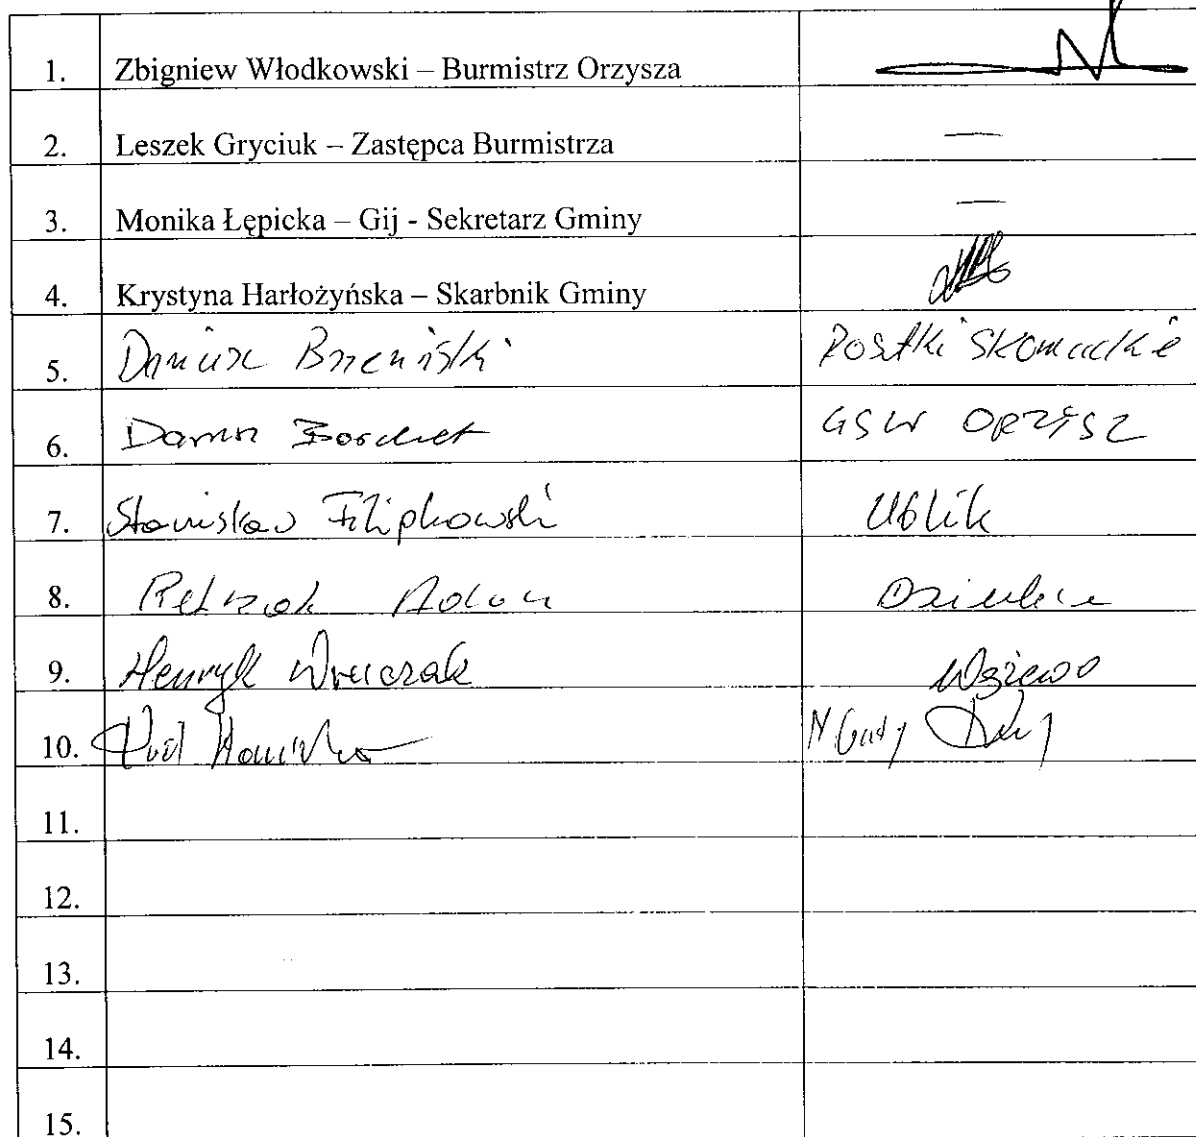 1. Zbigniew Włodkowski – Burmistrz Orzysza
2. Leszek Gryciuk – Zastępca Burmistrza —
3. Monika Łępicka – Gij - Sekretarz Gminy —
4. Krystyna Harłożyńska – Skarbnik Gminy
5. Dariusz Rostki Skomackie
6. GSW ORZYSZ
7. Stanisław Filipkowski Ublik
8. Adam
9. Henryk Wężewo
10.
11.
12.
13.
14.
15.